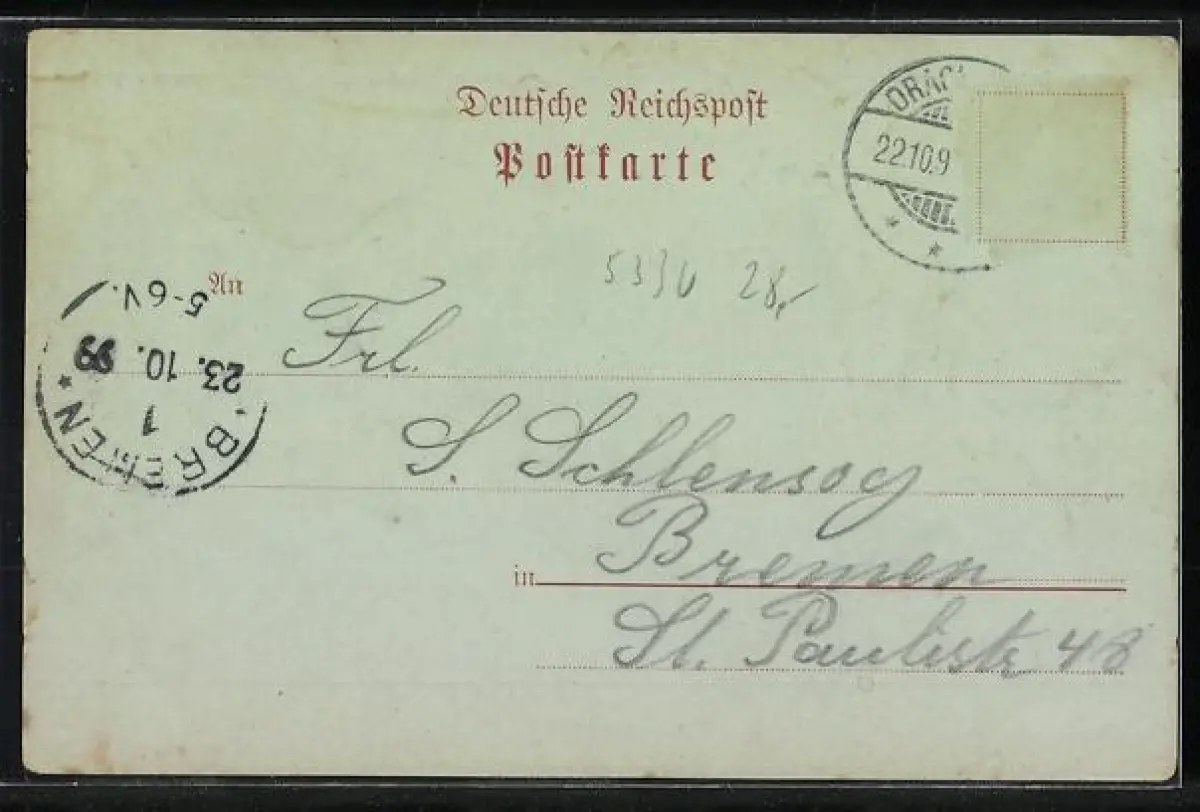 Deutsche Reichspost
Postkarte
22.10.9
An
5-6V.
23. 10. 99
1
BREMEN
5330 28,-
Frl.
S. Schlensog
in Bremen
St. Paulistr 48